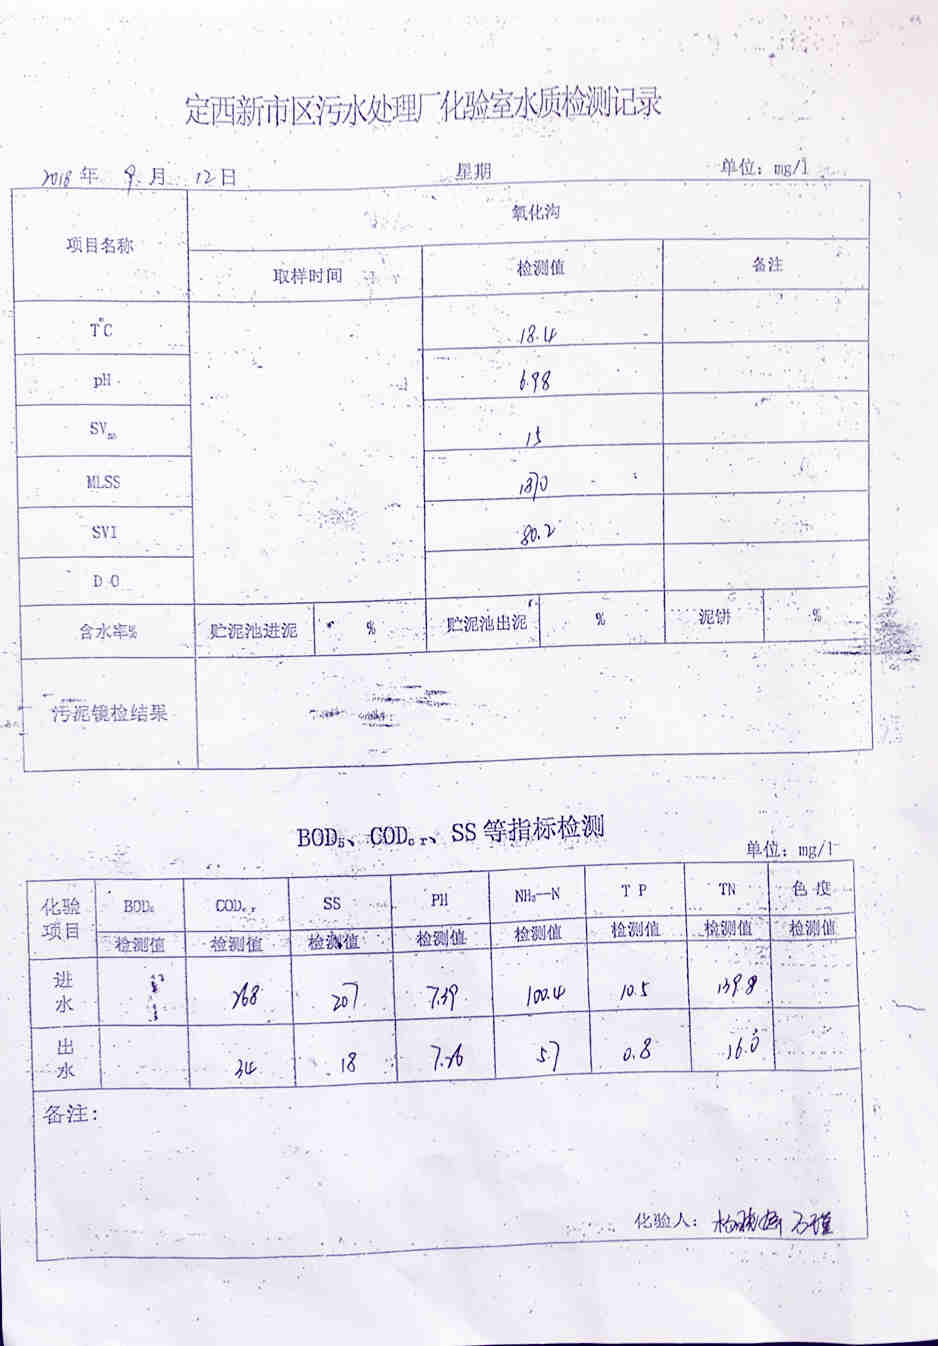 定西新市区污水处理厂化验室水质检测记录
2018年 9月 12日 星期 单位：mg/l
项目名称 氧化沟
取样时间 检测值 备注
T℃ 18.4
pH 6.98
SV₃₀ 15
MLSS 1870
SVI 80.2
D O
含水率% 贮泥池进泥 % 贮泥池出泥 % 泥饼 %
污泥镜检结果
BOD₅、CODcr、SS等指标检测
单位：mg/l
化验项目 BOD₅ CODcr SS PH NH₃—N T P TN 色度
检测值 检测值 检测值 检测值 检测值 检测值 检测值 检测值
进水 268 207 7.39 100.4 10.5 139.8
出水 34 18 7.26 5.7 0.8 16.0
备注：
化验人：